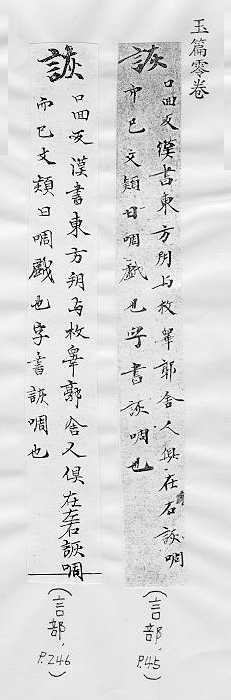 玉篇零卷
詼
口囬反漢書東方朔与枚皋郭舍人俱在右詼啁
而已文穎曰啁戲也字書詼啁也
(言部, P.45)
詼
口囬反漢書東方朔与枚皋郭舍人俱在左右詼啁
而已文類曰啁戲也字書詼啁也
(言部, P.246)